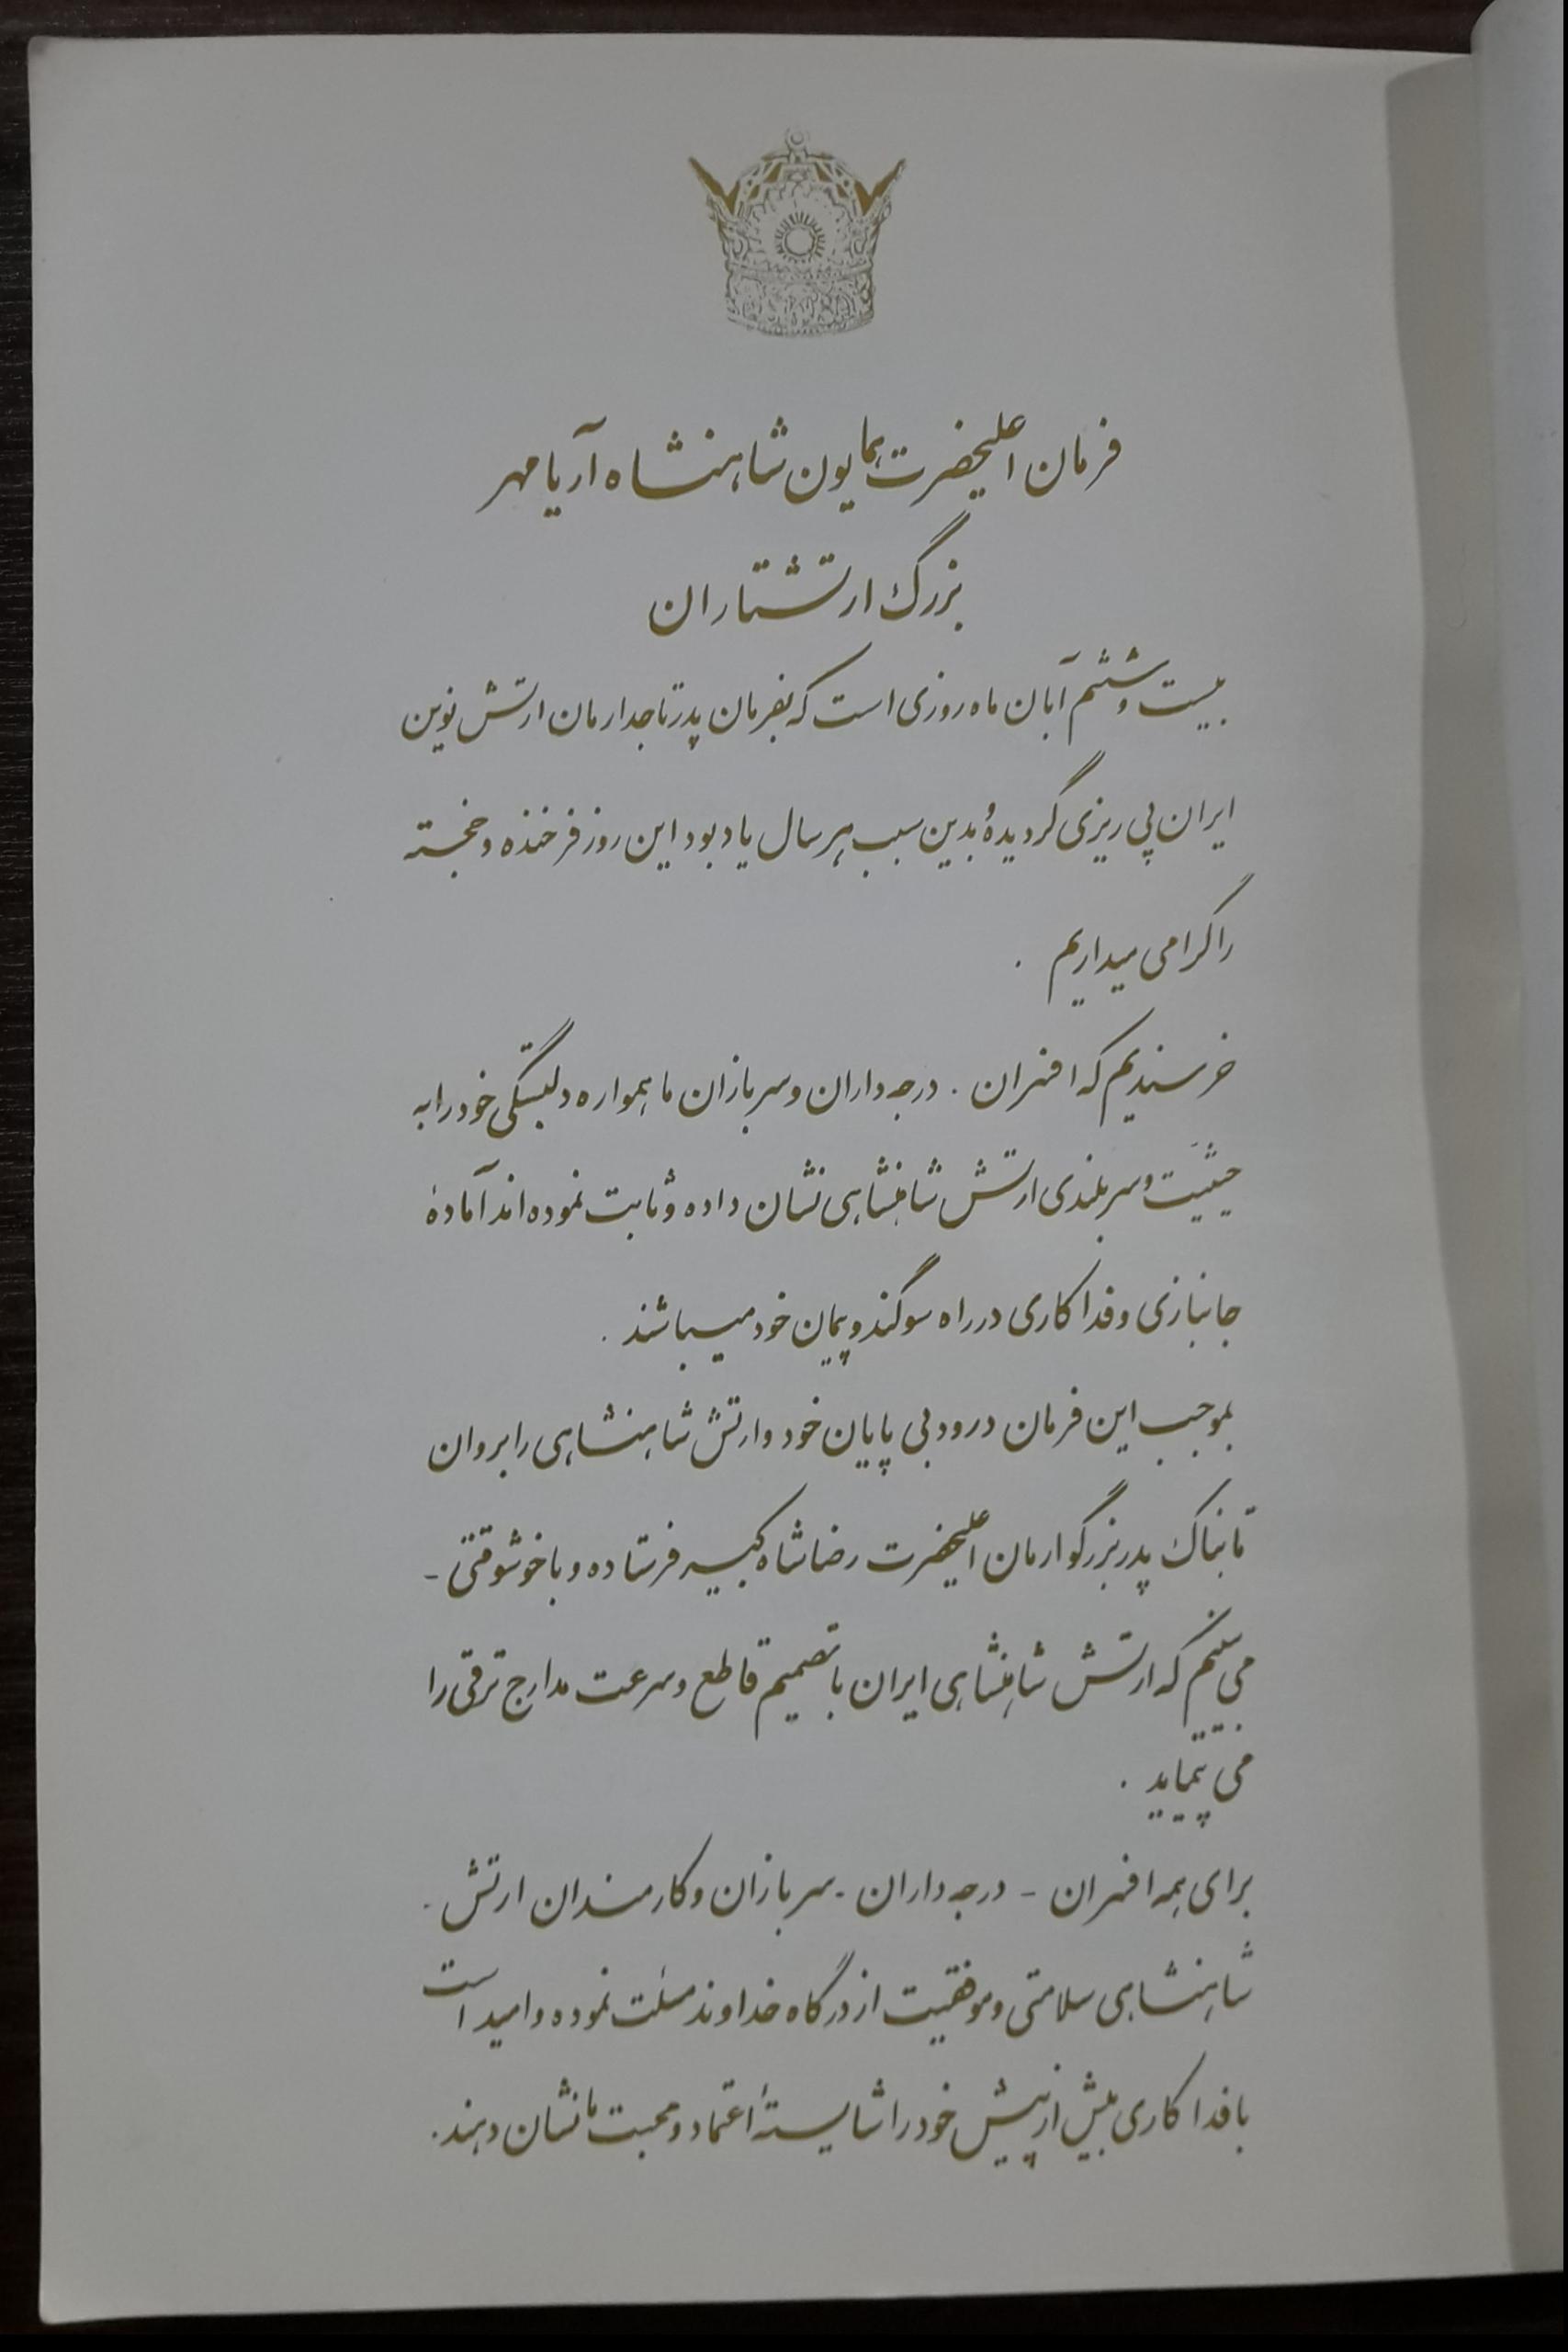 فرمان اعلیحضرت همایون شاهنشاه آریامهر
بزرگ ارتشتاران
بیست و ششم آبان ماه روزی است که بفرمان پدر تاجدارمان ارتش نوین
ایران پی ریزی گردیده و بدین سبب هر سال یادبود این روز فرخنده و خجسته
را گرامی میداریم .
خرسندیم که افسران . درجه داران و سربازان ما همواره دلبستگی خود را به
حیثیت و سربلندی ارتش شاهنشاهی نشان داده و ثابت نموده اند آمادهٔ
جانبازی و فداکاری در راه سوگند و پیمان خود میباشند .
بموجب این فرمان درود بی پایان خود و ارتش شاهنشاهی را بروان
تابناک پدر بزرگوارمان اعلیحضرت رضا شاه کبیر فرستاده و با خوشوقتی -
می بینیم که ارتش شاهنشاهی ایران با تصمیم قاطع و سرعت مدارج ترقی را
می پیماید .
برای همه افسران - درجه داران - سربازان و کارمندان ارتش -
شاهنشاهی سلامتی و موفقیت از درگاه خداوند مسئلت نموده و امید است
با فداکاری بیش از پیش خود را شایستهٔ اعتماد و محبت ما نشان دهند .